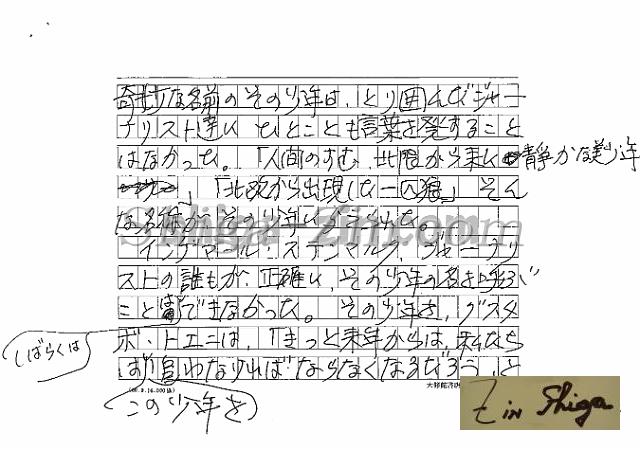 奇妙な名前のその少年は、とり囲んだジャー
ナリスト達に ひとことも言葉を発すること
はなかった。「人間のすむ、北限から来た 静かな美少年
」「北欧から出現した一匹狼」そん
な名称が その少年に
インゲマール・ステンマルク、ジャーナリ
ストの誰もが、正確に、その少年の名を呼ぶ
ことはできなかった。その少年を、グスタ
ボ・トエニは、「きっと来年からは、
しばらくは
ず 追わなければならなくなるだろう」と
この少年を
大修館書店
Shiga-Zin.com
Z in Shiga